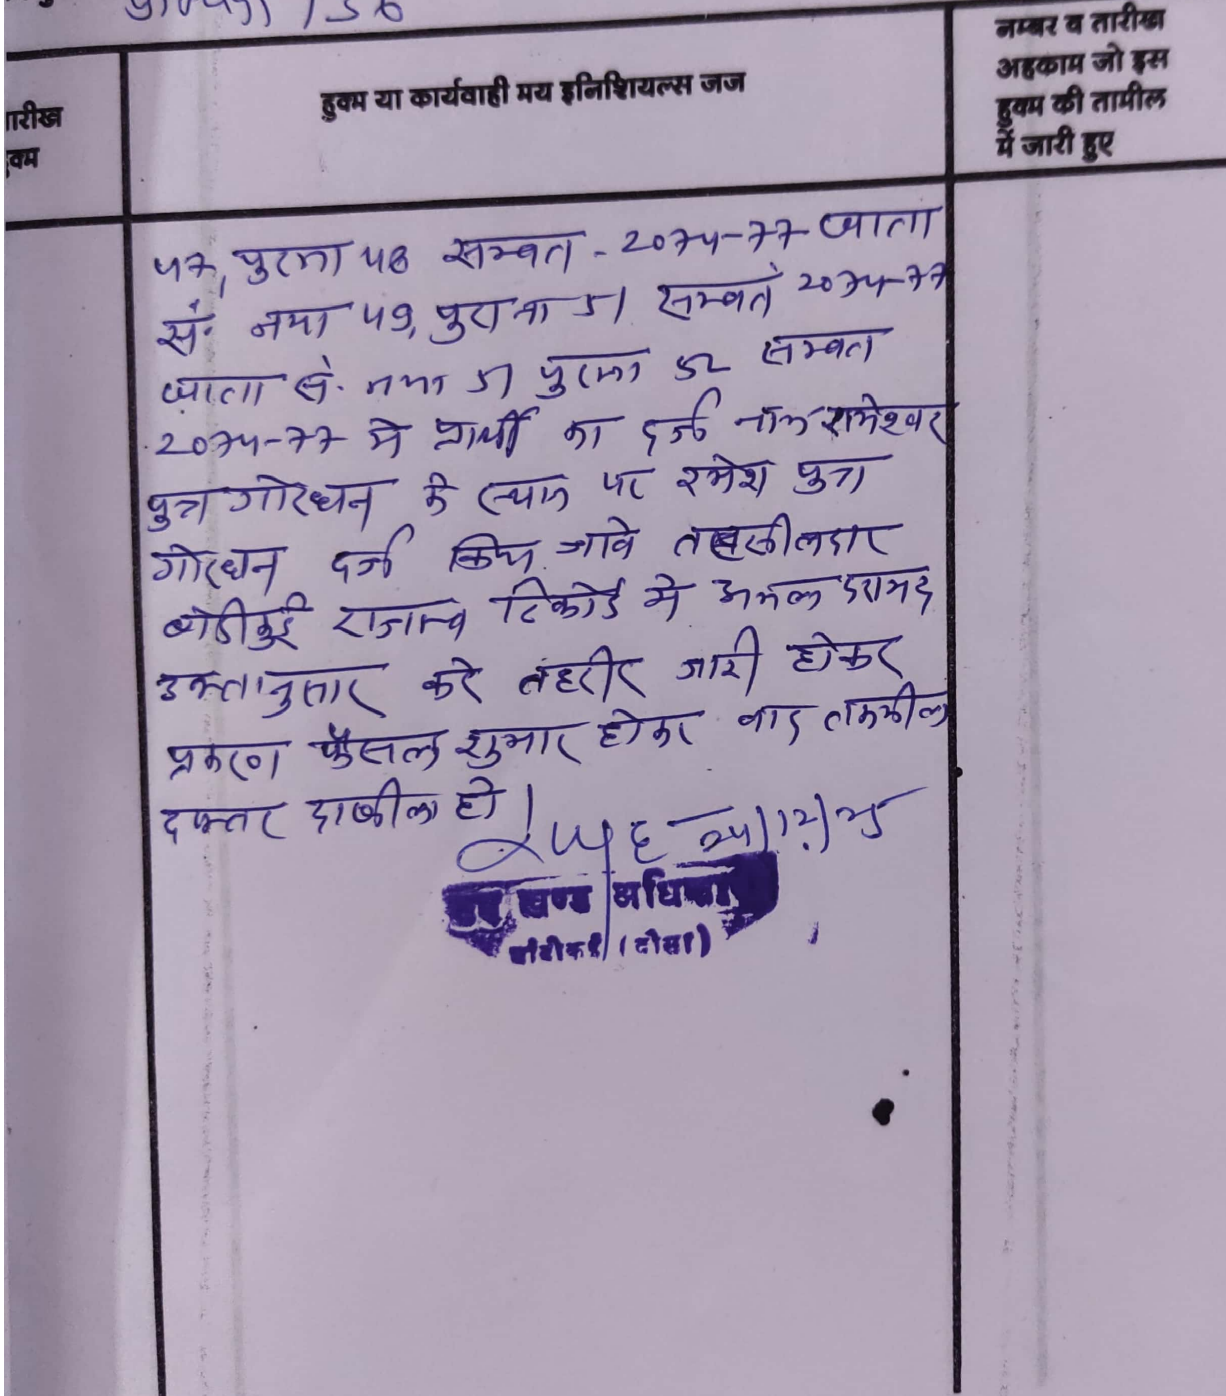 136
तारीख
हुक्म
हुक्म या कार्यवाही मय इनिशियल्स जज
नम्बर व तारीख
अहकाम जो इस
हुक्म की तामील
में जारी हुए
47, पुराना 48 सम्वत - 2074-77 खाता
सं. नया 49, पुराना 51 सम्वत 2074-77
खाता सं. नया 51 पुराना 52 सम्वत
2074-77 मे प्रार्थी का दर्ज नाम रामेश्वर
पुत्र गोरधन के स्थान पर रमेश पुत्र
गोरधन दर्ज किया जावे तहसीलदार
बांदीकुई राजस्व रिकोर्ड मे अमल दरामद
उक्तानुसार करे तहरीर जारी होकर
प्रकरण फैसल शुमार होकर बाद तकमील
दफ्तर दाखील हो।
उप खण्ड अधिकारी
बांदीकुई (दौसा)